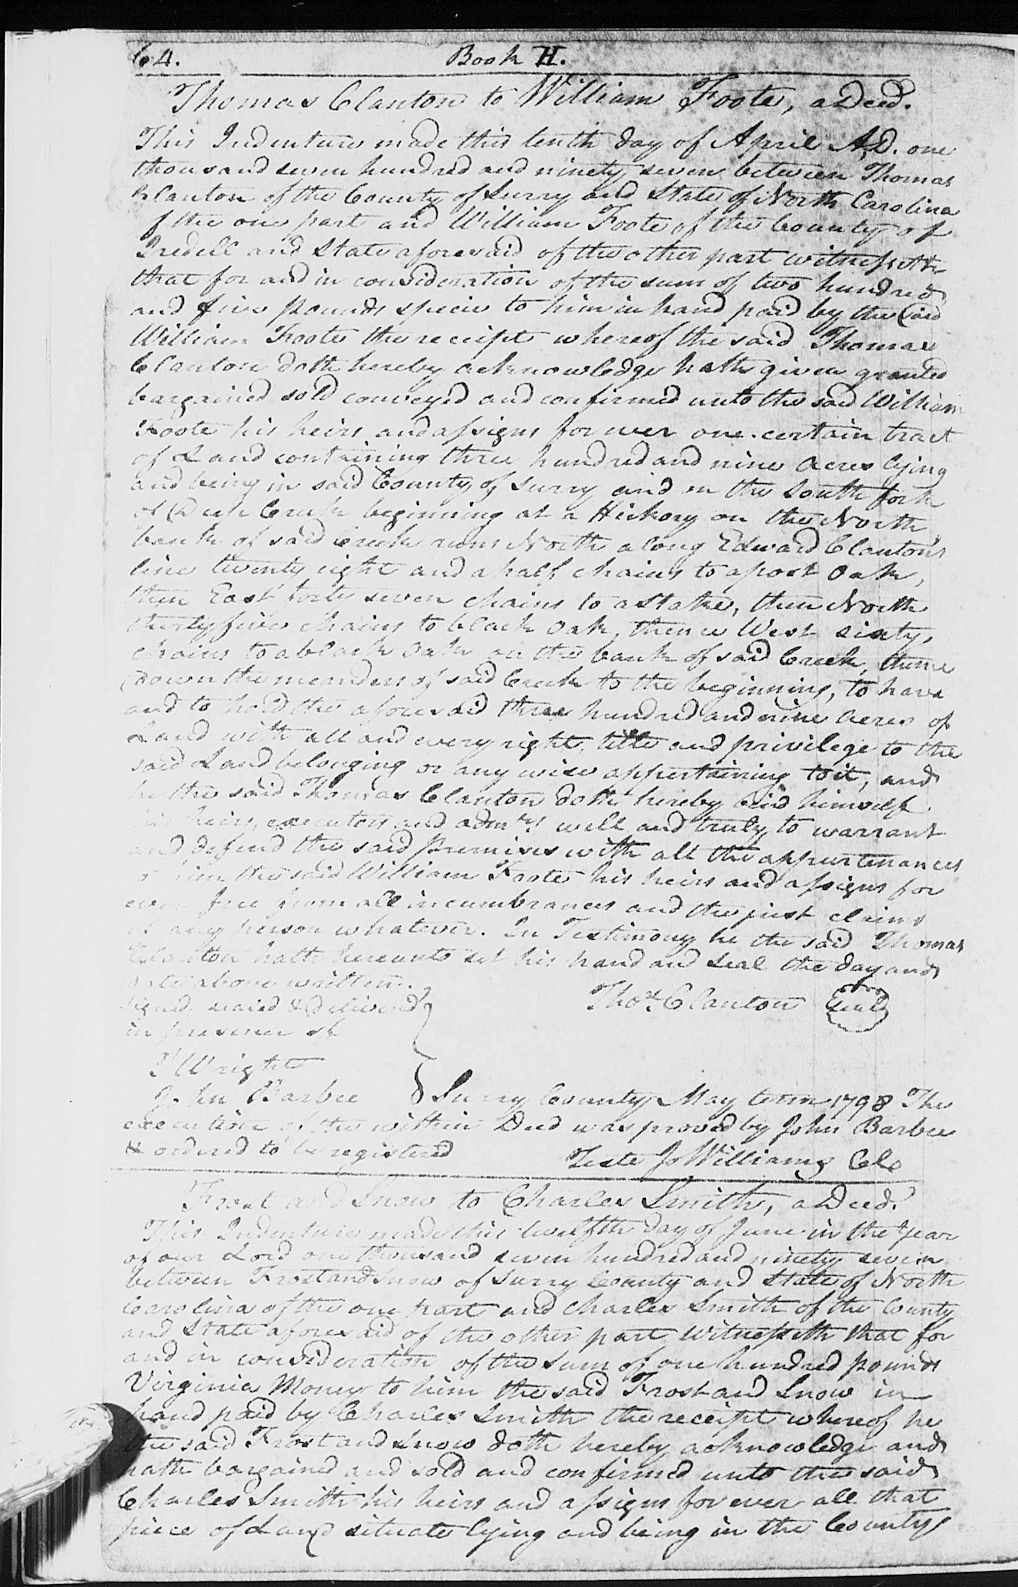 64. Book H.
Thomas Clanton to William Foote, a Deed.
This Indenture made this tenth day of April A.D. one
thousand seven hundred and ninety seven between Thomas
Clanton of the County of Surry and State of North Carolina
of the one part and William Foote of the County of
Iredell and State aforesaid of the other part witnesseth
that for and in consideration of the sum of two hundred
and five pounds specie to him in hand paid by the said
William Foote the receipt whereof the said Thomas
Clanton doth hereby acknowledge hath given granted
bargained sold conveyed and confirmed unto the said William
Foote his heirs and assigns forever one certain tract
of Land containing three hundred and nine acres lying
and being in said County of Surry and on the South fork
of Creek beginning at a Hickory on the North
bank of said Creek runs North along Edward Clanton's
line twenty eight and a half chains to a post Oak,
then East forty seven chains to a stake, then North
thirty five chains to black Oak, thence West sixty
chains to a black Oak on the bank of said Creek, thence
down the meanders of said Creek to the beginning, to have
and to hold the aforesaid three hundred and nine acres of
Land with all and every right, title and privilege to the
said Land belonging or any wise appertaining to it, and
he the said Thomas Clanton doth hereby bind himself
his heirs, executors and admrs well and truly to warrant
and defend the said premises with all the appurtenances
to him the said William Foote his heirs and assigns for
ever free from all incumbrances and the just claims
of any person whatever. In Testimony he the said Thomas
Clanton hath hereunto set his hand and seal the day and
date above written.
Signed sealed & delivered Thos. Clanton Seal
in presence of
J Wright
John Barbee Surry County May term 1798 The
execution of the within Deed was proved by John Barbee
& ordered to be registered Teste Jo Williams Clk
Frost and Snow to Charles Smith, a Deed.
This Indenture made this twelfth day of June in the year
of our Lord one thousand seven hundred and ninety seven
between Frost and Snow of Surry County and State of North
Carolina of the one part and Charles Smith of the County
and State aforesaid of the other part, Witnesseth that for
and in consideration of the sum of one hundred pounds
Virginia Money to him the said Frost and Snow in
hand paid by Charles Smith the receipt whereof he
the said Frost and Snow doth hereby acknowledge and
hath bargained and sold and confirmed unto the said
Charles Smith his heirs and assigns forever all that
piece of Land situate lying and being in the County